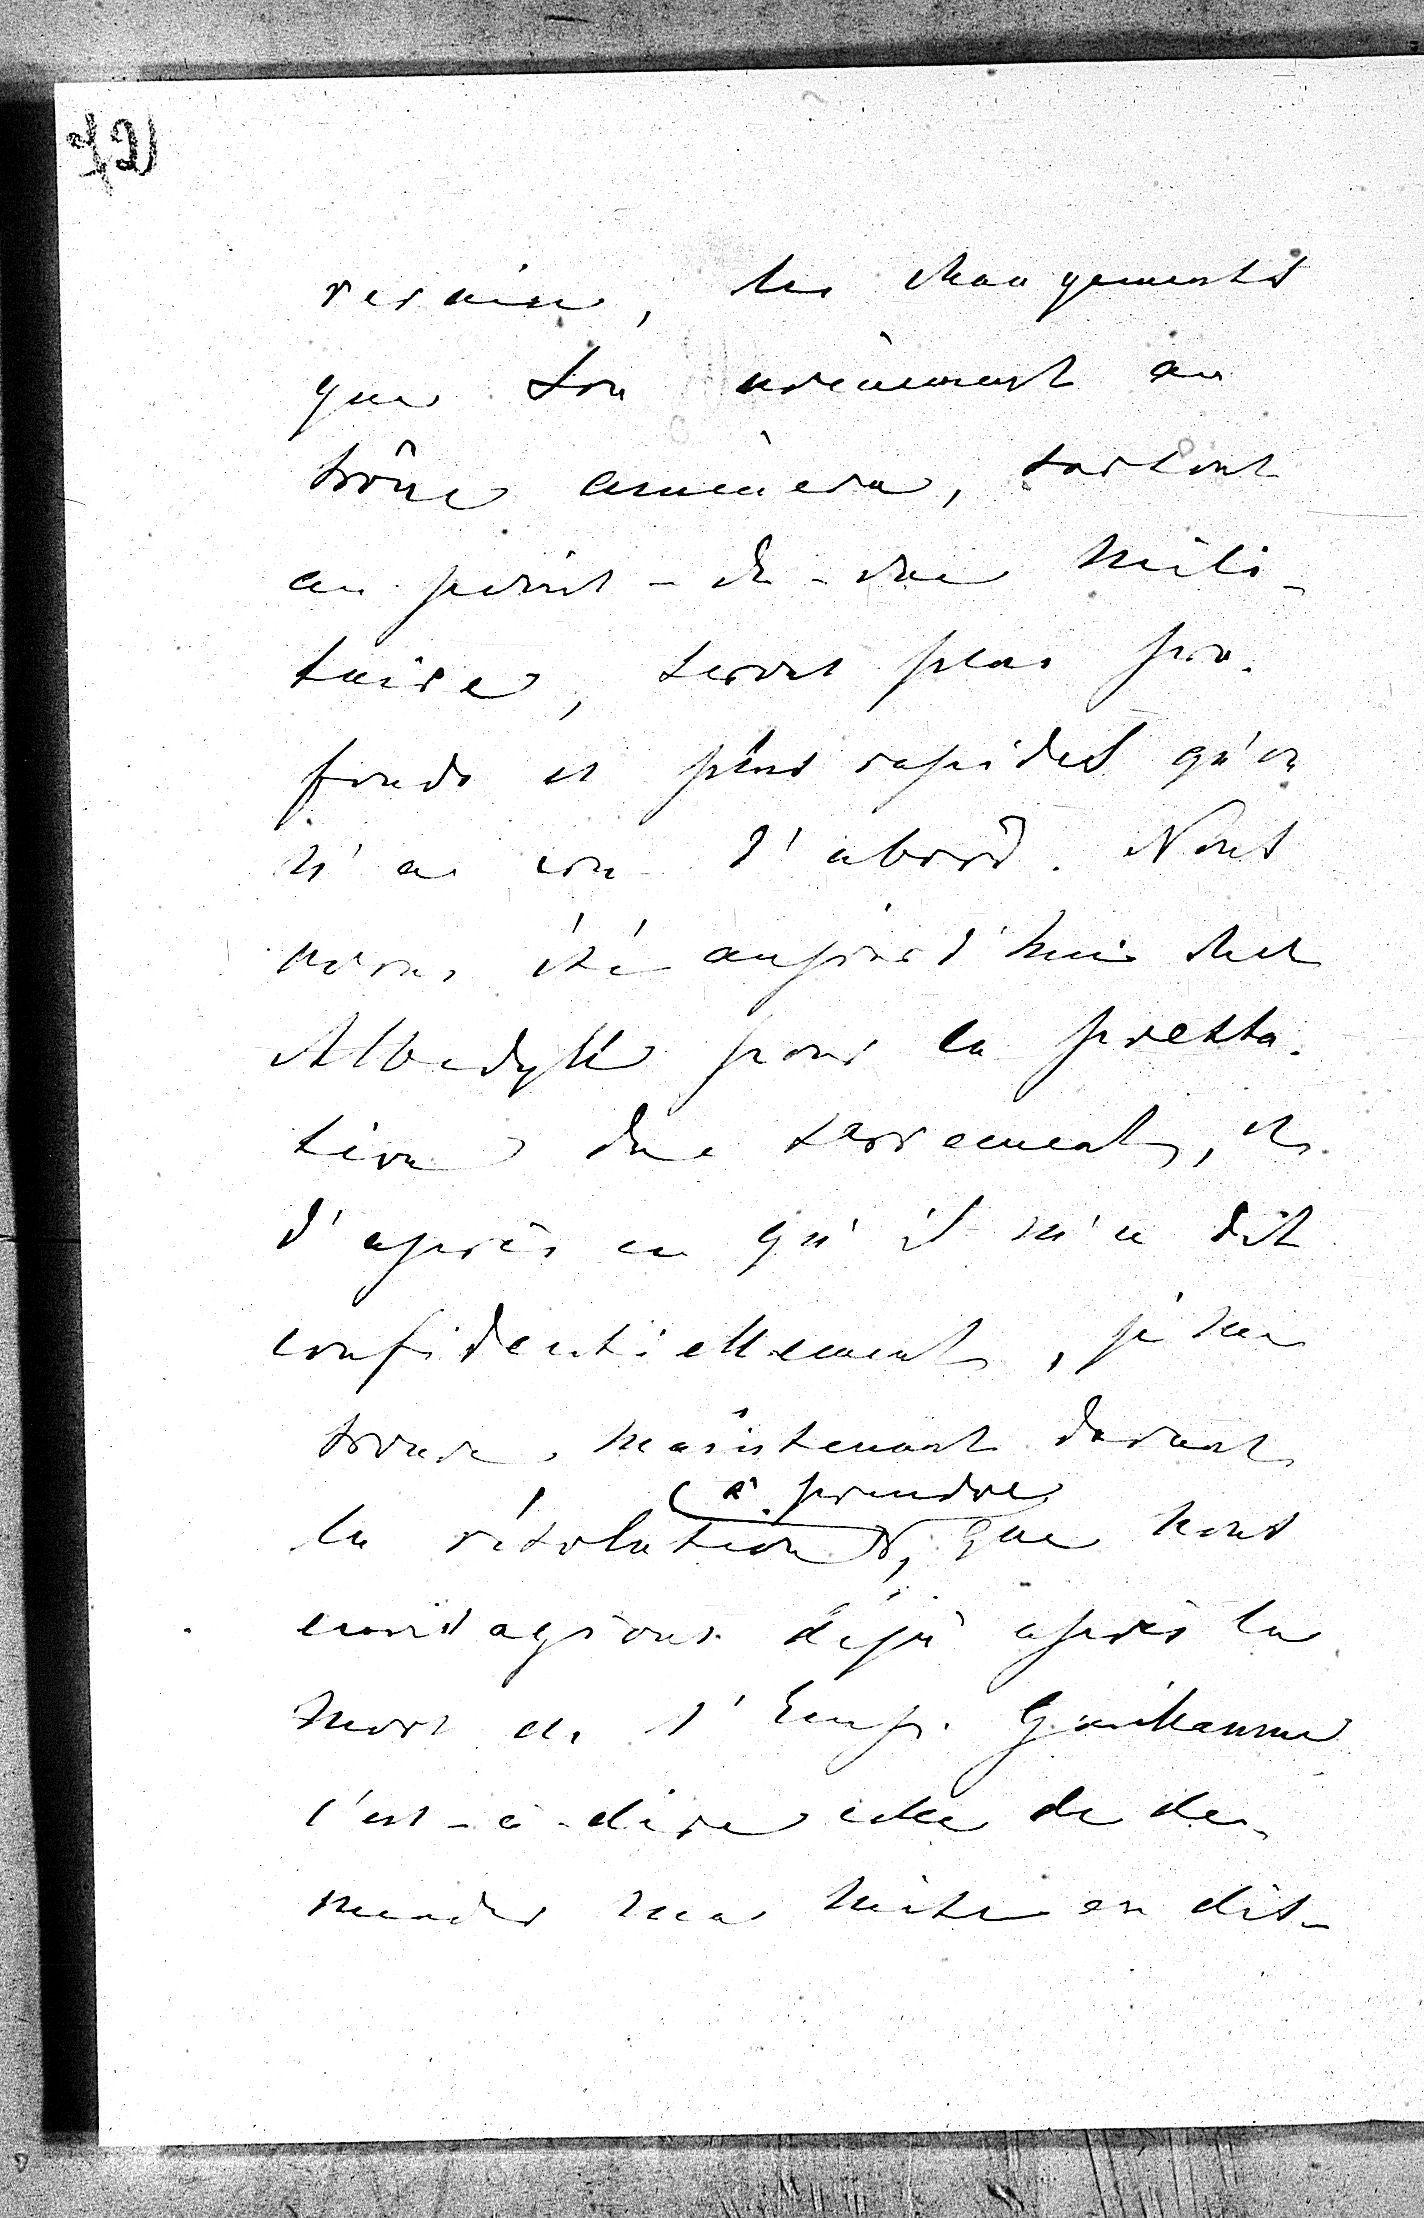 verain, les changements
que son avènement au
trône amènera, surtout
au point-de-vue mili-
taire, seront plus pro-
fonds et plus rapides qu'on
n'a cru d'abord. Nous
avons été aujourd'hui chez
Albedyll pour la presta-
tion du serrement, et
d'après ce qu'il m'a dit
confidentiellement, je me
trouve maintenant devant
à prendre
la résolution, que nous
envisagions déjà après la
mort de l'Emp. Guillaume
c'est-à-dire celle de de-
mander ma mise en dis-